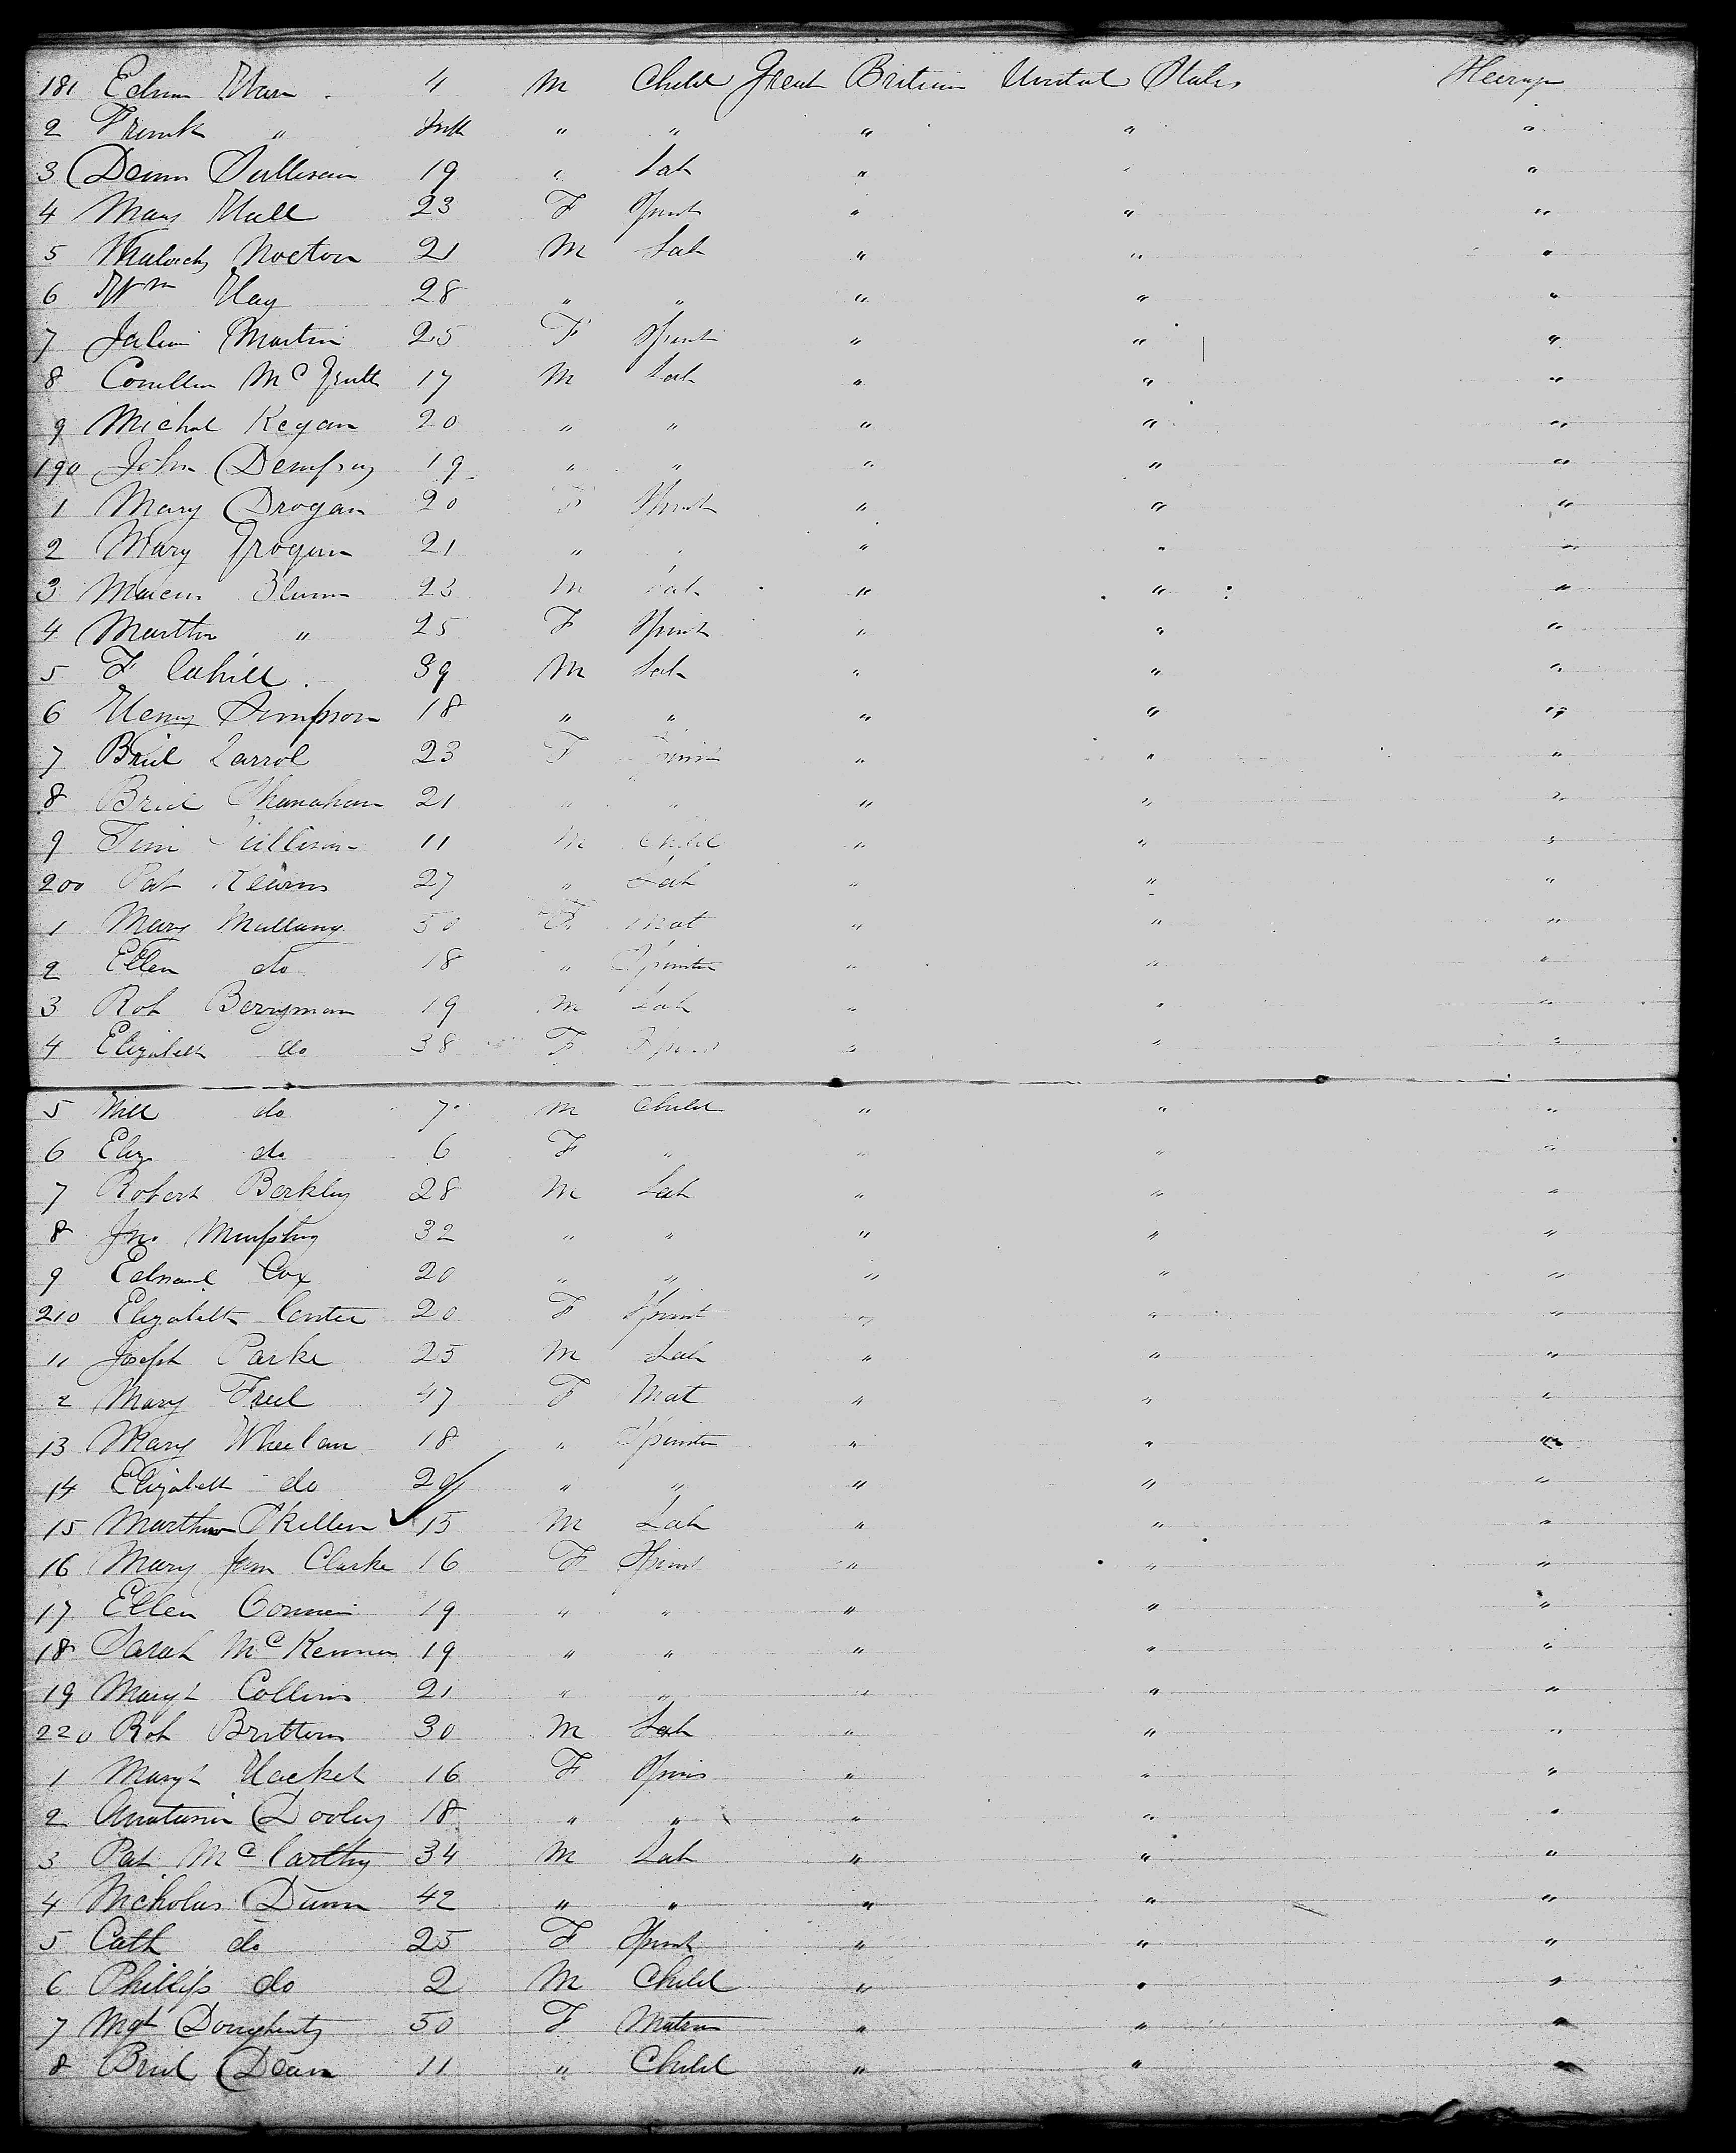 181 Edwin 4 M Child Great Britain United States Steerage
2 Frank " Inft " " " " "
3 Dennis Sullivan 19 " Lab " " "
4 Mary Hall 23 F Spinst " " "
5 Malachy Nocton 21 M Lab " " "
6 Wm Hay 28 " " " " "
7 Julia Martin 25 F Spinst " " "
8 17 M Lab " " "
9 Michal Regan 20 " " " " "
190 John Dempsey 19 " " " " "
1 Mary Drogan 20 F Spinst " " "
2 Mary Grogan 21 " " " " "
3 Marcus 23 M Lab " " "
4 Martha " 25 F Spinst " " "
5 F Cahill 39 M Lab " " "
6 Henry Simpson 18 " " " " "
7 Brid Carrol 23 F Spinst " " "
8 Brid Shanahan 21 " " " " "
9 Tim Sullivan 11 M Child " " "
200 Pat Kearns 27 " Lab " " "
1 Mary Mullany 50 F Mat " " "
2 Ellen do 18 " Spinster " " "
3 Rob Berryman 19 M Lab " " "
4 Elizabeth do 38 F Spinst " " "
5 Will do 7 M Child " " "
6 Eliz do 6 F " " " "
7 Robert Berkley 28 M Lab " " "
8 Jno Murphy 32 " " " " "
9 Edward Cox 20 " " " " "
210 Elizabeth 20 F Spinst " " "
11 Joseph Parke 25 M Lab " " "
2 Mary Freel 47 F Mat " " "
13 Mary Wheelan 18 " Spinster " " "
14 Elizabeth do 20 " " " " "
15 Matthew Skillen 15 M Lab " " "
16 Mary Jane Clarke 16 F Spins " " "
17 Ellen 19 " " " " "
18 Sarah McKenna 19 " " " " "
19 Margt Collins 21 " " " " "
220 Rob 30 M Lab " " "
1 Margt Hacket 16 F Spins " " "
2 Anatasia Dooley 18 " " " " "
3 Pat McCarthy 34 M Lab " " "
4 Nicholas Dunn 42 " " " " "
5 Cath do 25 F Spinst " " "
6 Phillip do 2 M Child " " "
7 Mgt Dougherty 50 F Matron " " "
8 Brid Dean 11 " Child " " "